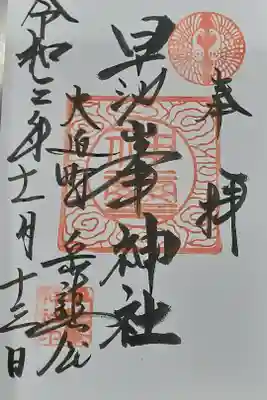 奉拝
早池峯神社
大迫町
令和 年十一月十三日